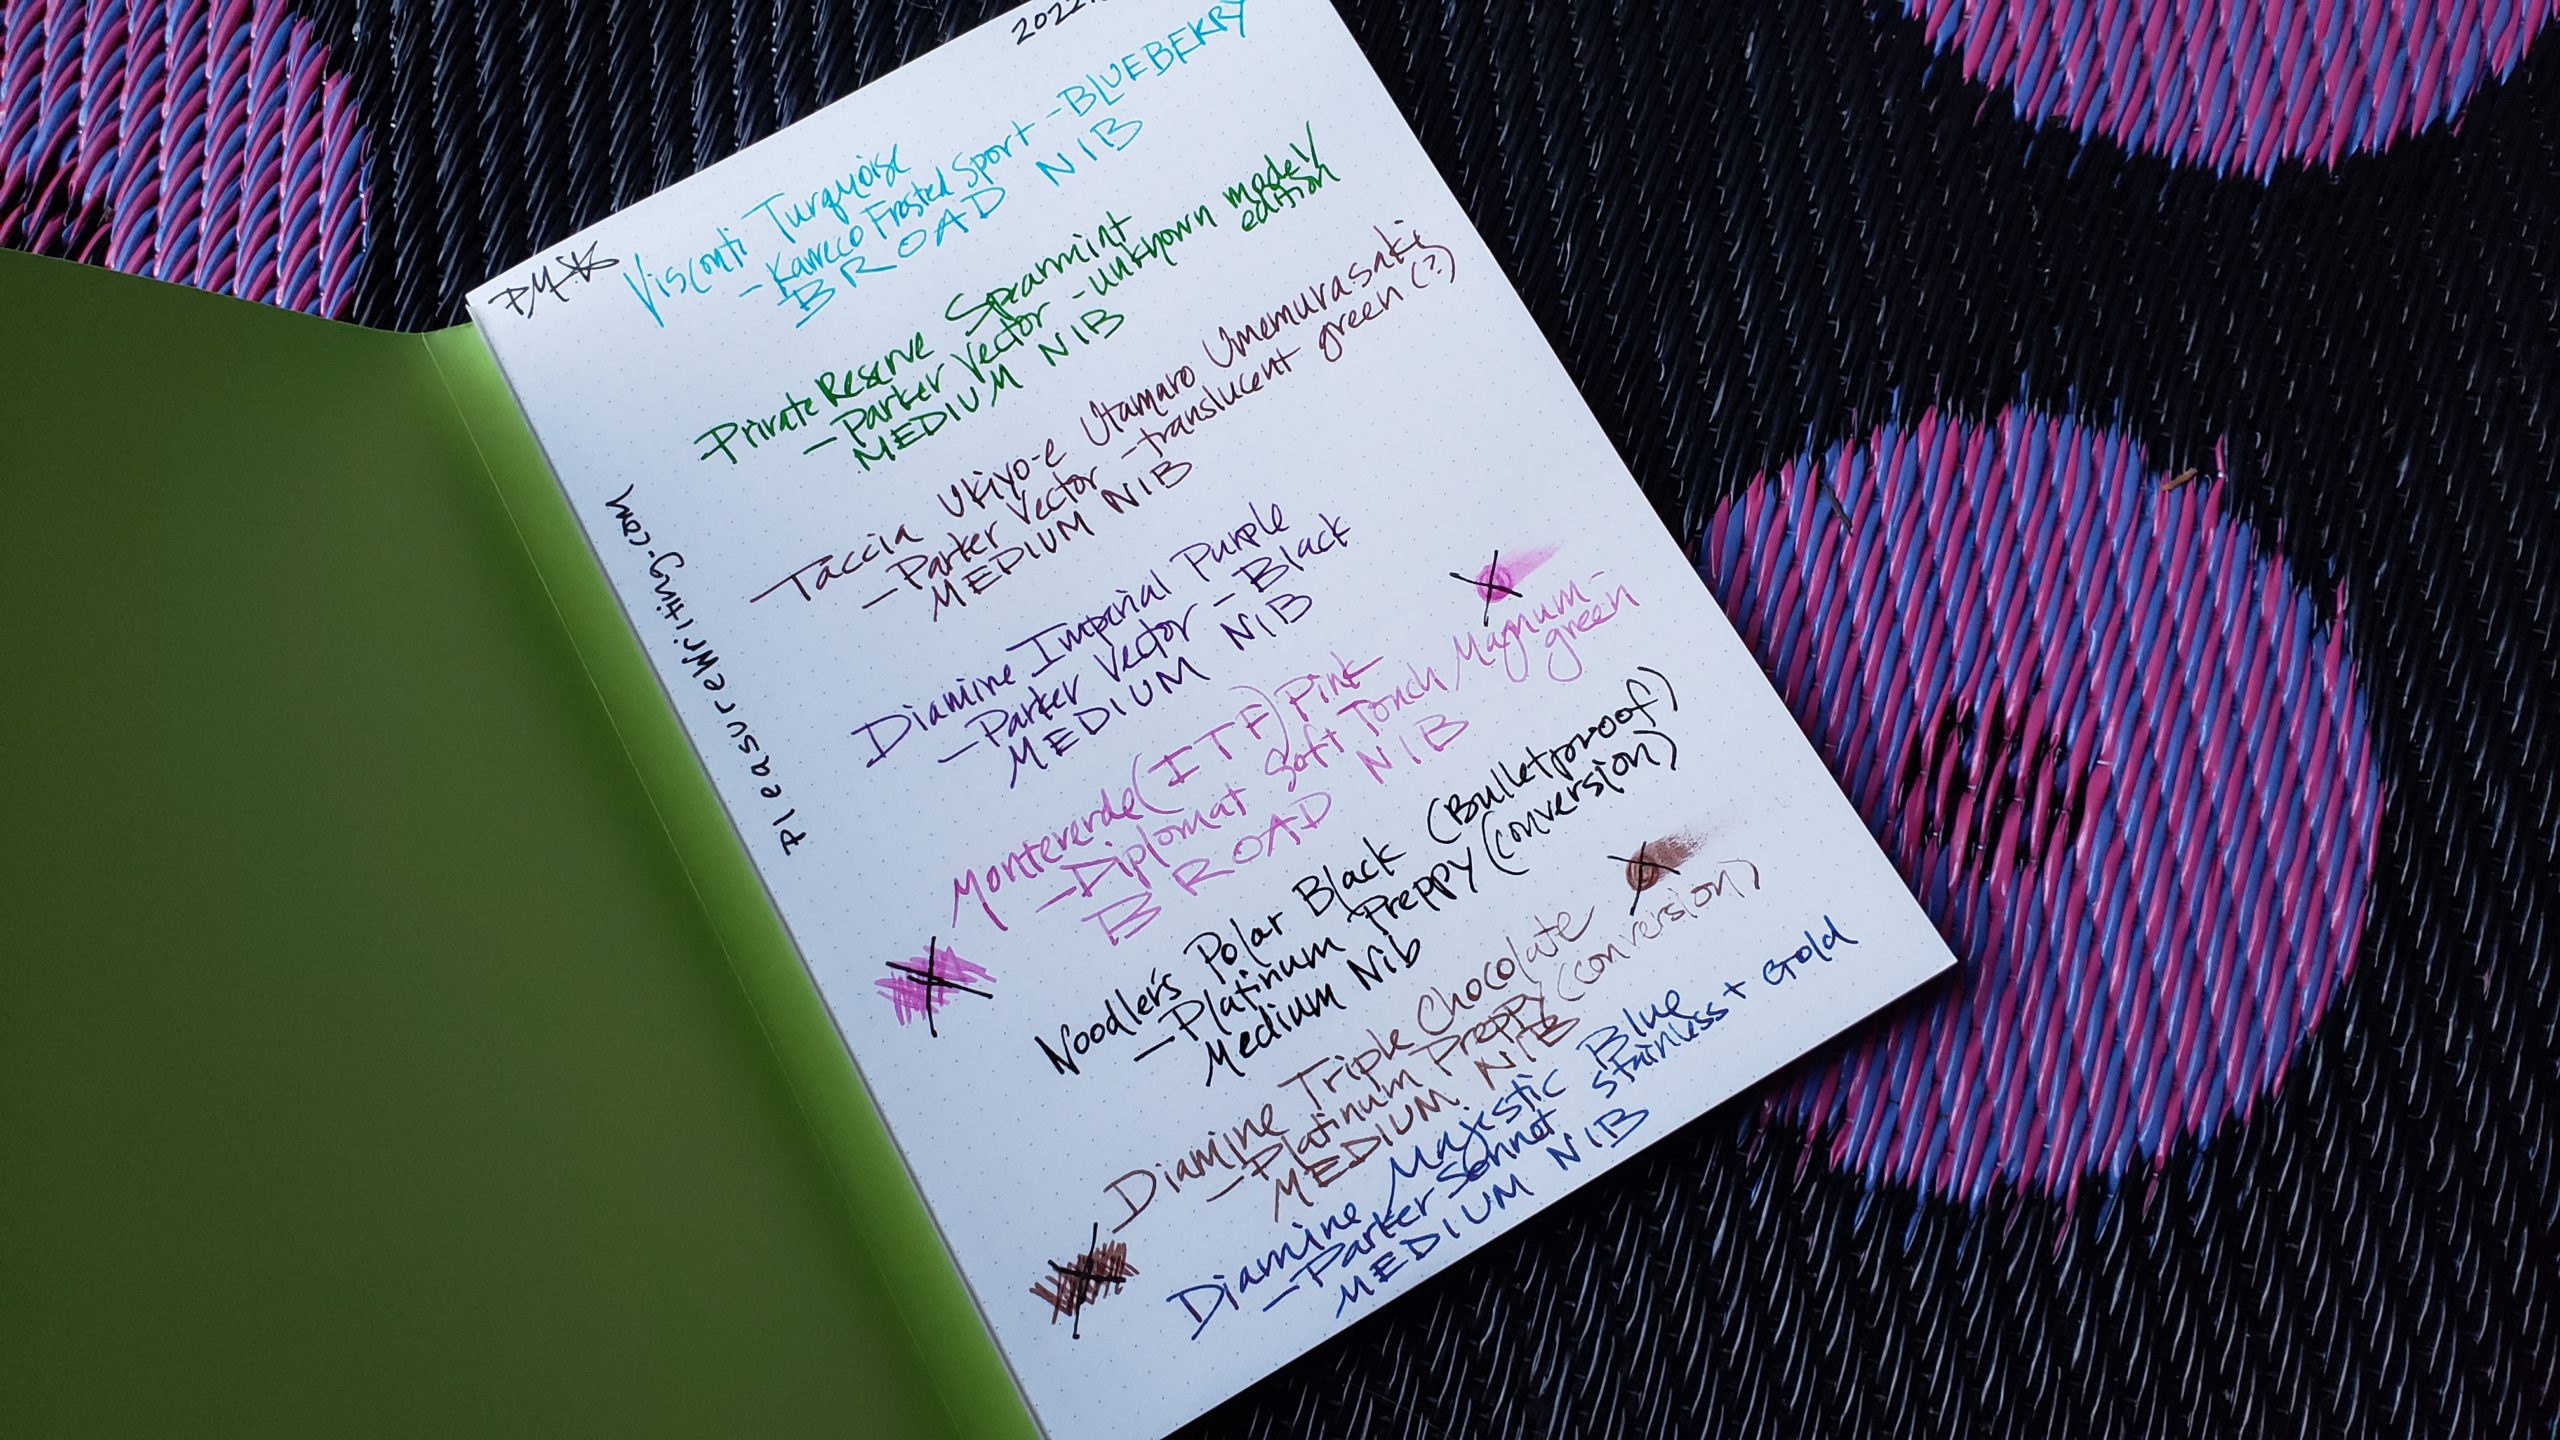 2022
Visconti Turquoise
- Kaweco Frosted Sport - BLUEBERRY
BROAD NIB
Private Reserve Spearmint
- Parker Vector - unknown model/
edition
MEDIUM NIB
Taccia Ukiyo-e Utamaro Umemurasaki
- Parker Vector - translucent green(?)
MEDIUM NIB
Diamine Imperial Purple
- Parker Vector - Black
MEDIUM NIB
Monteverde (ITF) Pink
- Diplomat Soft Touch Magnum -
green
BROAD NIB
Noodler's Polar Black (Bulletproof)
- Platinum Preppy (conversion)
Medium Nib
Diamine Triple Chocolate
- Platinum Preppy (conversion)
MEDIUM NIB
Diamine Majestic Blue
- Parker Sonnet Stainless + Gold
MEDIUM NIB
PleasureWriting.com